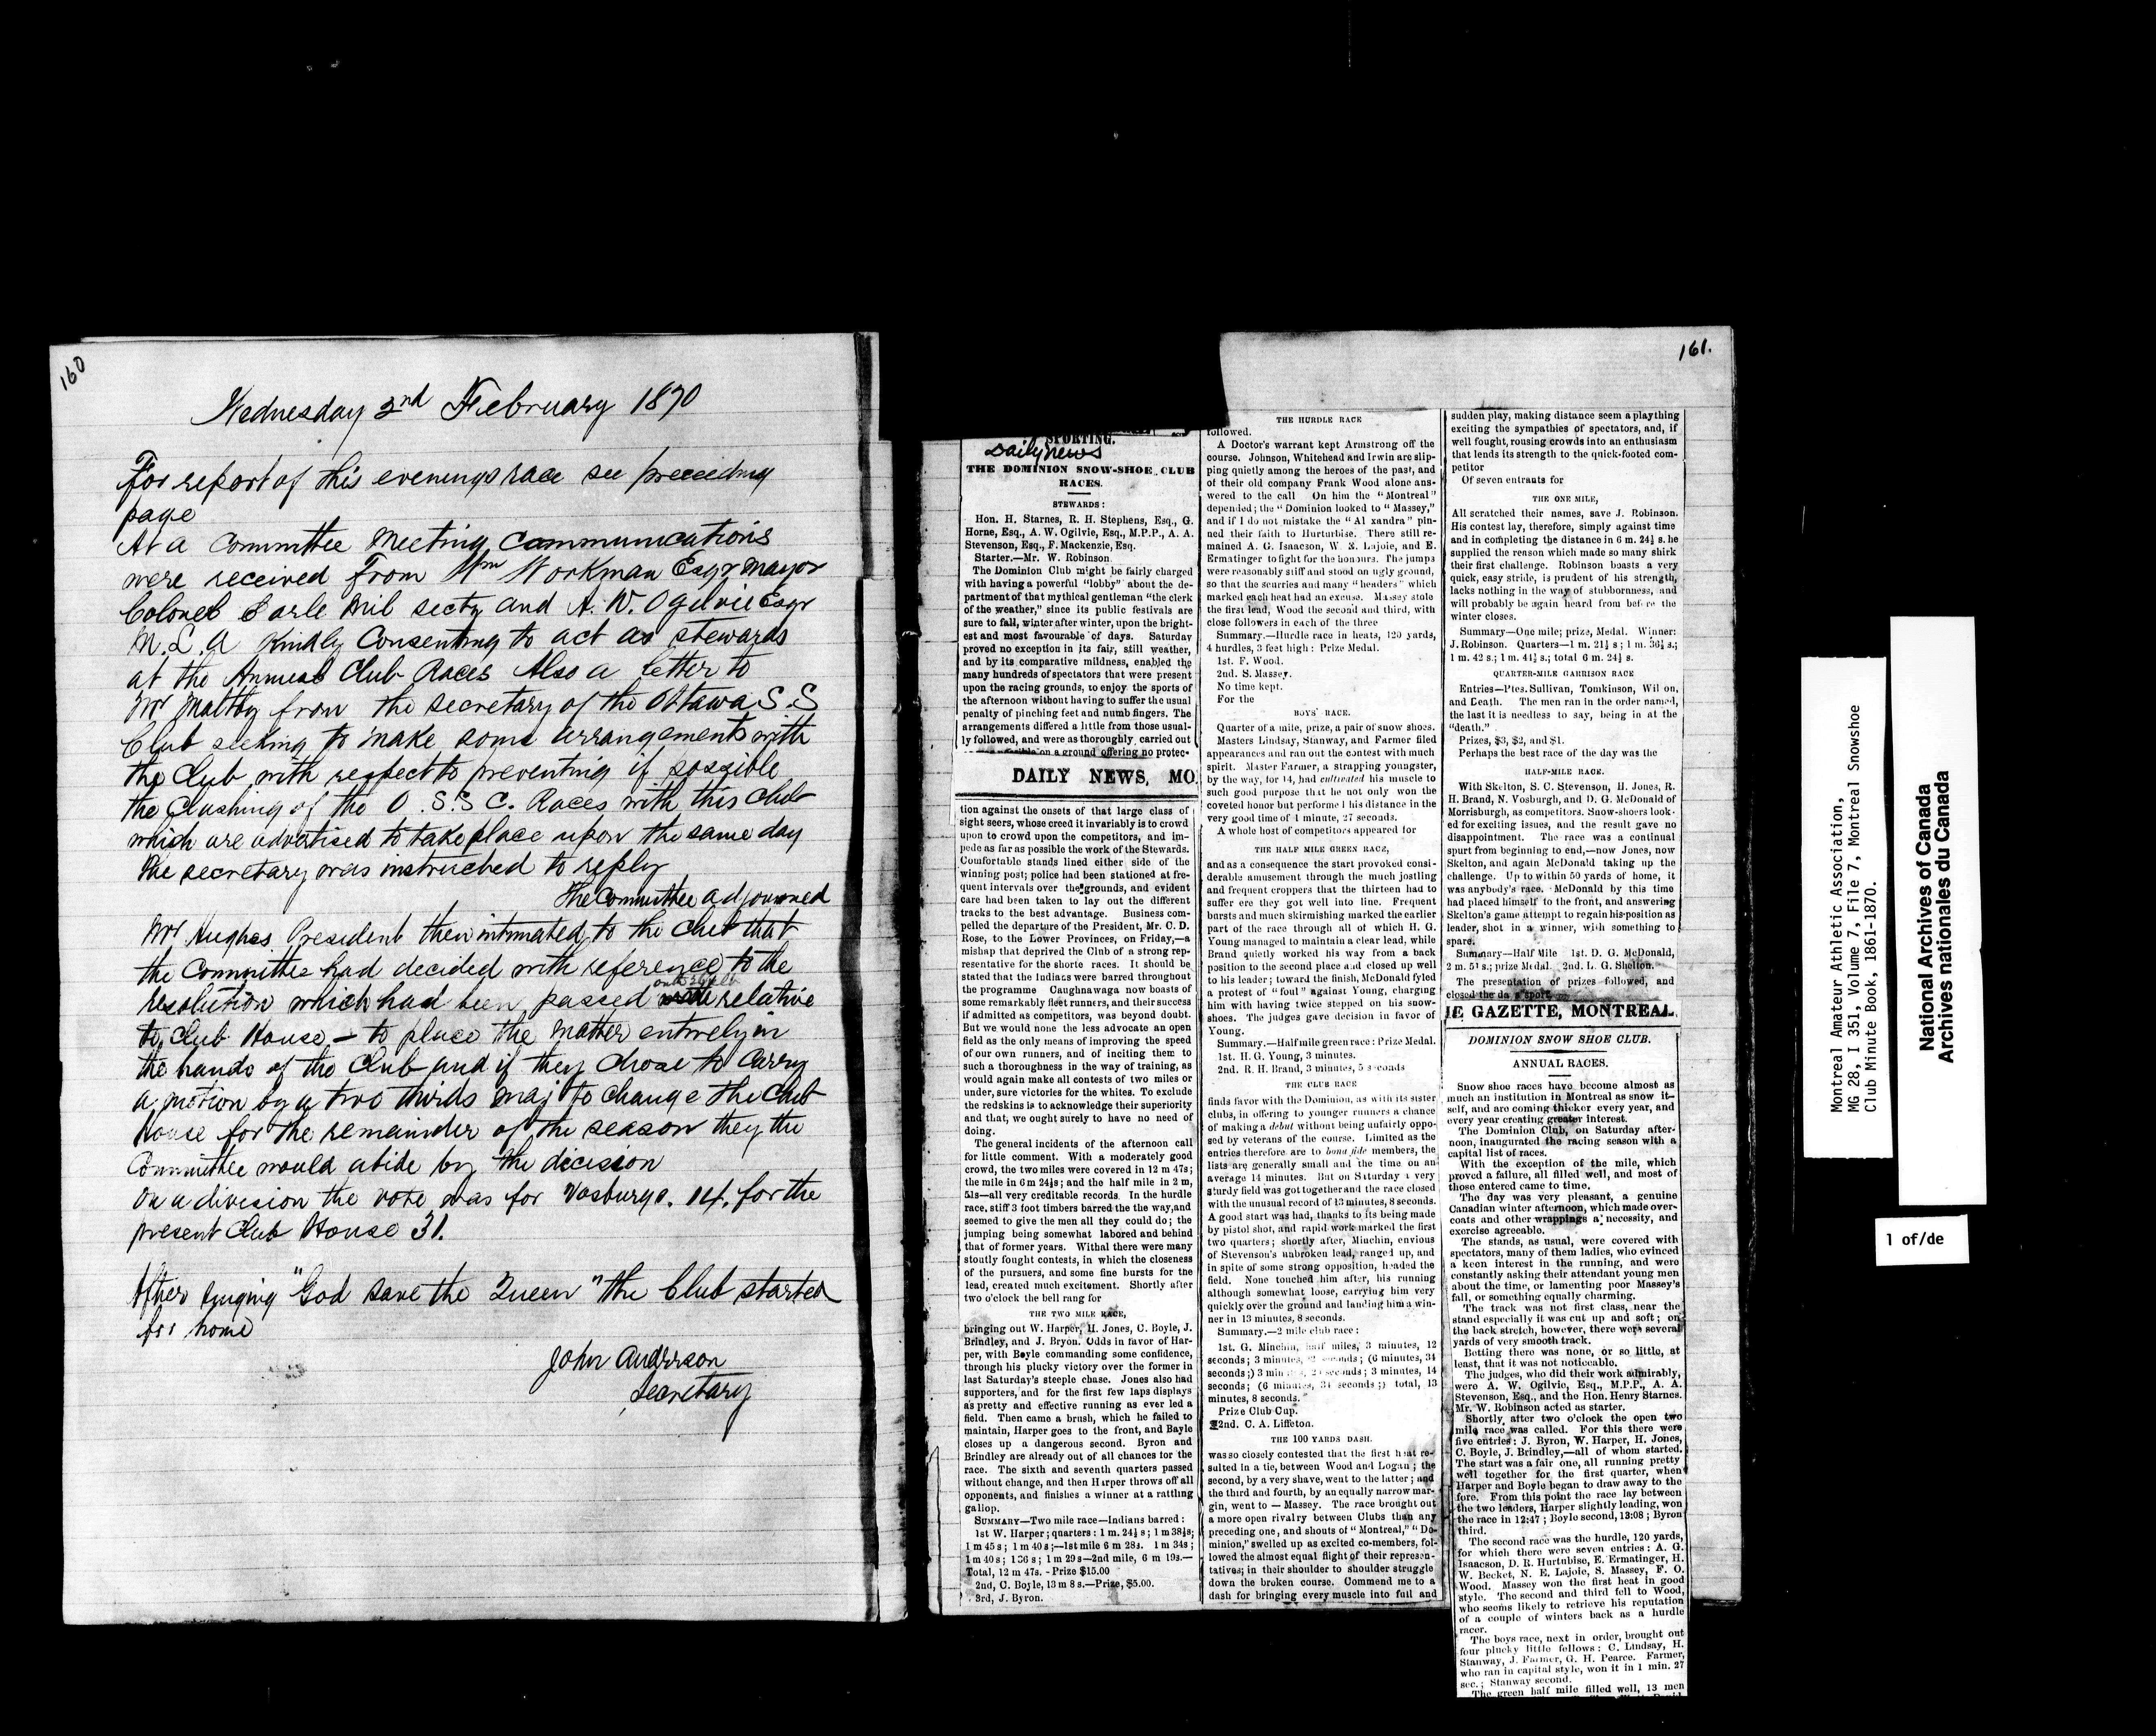 160
Wednesday 2nd February 1870
For report of this evenings race see preceeding
page
At a Committee Meeting communications
were received from Wm Workman Esqr Mayor
Colonel Earle Mil secty and A. W. Ogilvie Esqr
M.L.A Kindly Consenting to act as stewards
at the Annual Club Races Also a letter to
Mr Maltby from the secretary of the Ottawa S.S
Club seeking to make some arrangements with
the Club with respect to preventing if possible
the Clashing of the O.S.S C. Races with this Club
which are advertised to take place upon the same day
the secretary was instructed to reply
The Committee adjourned
Mr Hughes President then intimated to the club that
the Committee had decided with reference to the
resolution which had been passed relative
to Club House – to place the matter entirely in
the hands of the Club and if they chose to carry
a motion by a two thirds maj to change the Club
House for the remainder of the season they the
Committee would abide by the dicision
On a division the vote was for Vosburgs. 14. for the
present Club House 31.
After singing "God save the Queen" the Club started
for home
John Anderson
Secretary
161.
SPORTING.
Daily News
THE DOMINION SNOW-SHOE CLUB
RACES.
STEWARDS:
Hon. H. Starnes, R. H. Stephens, Esq., G.
Horne, Esq., A. W. Ogilvie, Esq., M.P.P., A. A.
Stevenson, Esq., F. Mackenzie, Esq.
Starter.—Mr. W. Robinson.
The Dominion Club might be fairly charged
with having a powerful "lobby" about the de-
partment of that mythical gentleman "the clerk
of the weather," since its public festivals are
sure to fall, winter after winter, upon the bright-
est and most favourable of days. Saturday
proved no exception in its fair, still weather,
and by its comparative mildness, enabled the
many hundreds of spectators that were present
upon the racing grounds, to enjoy the sports of
the afternoon without having to suffer the usual
penalty of pinching feet and numb fingers. The
arrangements differed a little from those usual-
ly followed, and were as thoroughly carried out
on a ground offering no protec-
DAILY NEWS, MO
tion against the onsets of that large class of
sight seers, whose creed it invariably is to crowd
upon to crowd upon the competitors, and im-
pede as far as possible the work of the Stewards.
Comfortable stands lined either side of the
winning post; police had been stationed at fre-
quent intervals over the grounds, and evident
care had been taken to lay out the different
tracks to the best advantage. Business com-
pelled the departure of the President, Mr. C. D.
Rose, to the Lower Provinces, on Friday,—a
mishap that deprived the Club of a strong rep-
resentative for the shorte races. It should be
stated that the Indians were barred throughout
the programme Caughnawaga now boasts of
some remarkably fleet runners, and their success
if admitted as competitors, was beyond doubt.
But we would none the less advocate an open
field as the only means of improving the speed
of our own runners, and of inciting them to
such a thoroughness in the way of training, as
would again make all contests of two miles or
under, sure victories for the whites. To exclude
the redskins is to acknowledge their superiority
and that, we ought surely to have no need of
doing.
The general incidents of the afternoon call
for little comment. With a moderately good
crowd, the two miles were covered in 12 m 47s;
the mile in 6 m 24½s; and the half mile in 2 m,
51s—all very creditable records. In the hurdle
race, stiff 3 foot timbers barred the the way, and
seemed to give the men all they could do; the
jumping being somewhat labored and behind
that of former years. Withal there were many
stoutly fought contests, in which the closeness
of the pursuers, and some fine bursts for the
lead, created much excitement. Shortly after
two o'clock the bell rang for
THE TWO MILE RACE,
bringing out W. Harper, H. Jones, C. Boyle, J.
Brindley, and J. Bryon. Odds in favor of Har-
per, with Boyle commanding some confidence,
through his plucky victory over the former in
last Saturday's steeple chase. Jones also had
supporters, and for the first few laps displays
as pretty and effective running as ever led a
field. Then came a brush, which he failed to
maintain, Harper goes to the front, and Bayle
closes up a dangerous second. Byron and
Brindley are already out of all chances for the
race. The sixth and seventh quarters passed
without change, and then Harper throws off all
opponents, and finishes a winner at a rattling
gallop.
SUMMARY—Two mile race—Indians barred:
1st W. Harper; quarters: 1 m. 24½ s; 1 m 38½s;
1 m 45 s; 1 m 40 s;—1st mile 6 m 28s. 1 m 34s;
1 m 40 s; 1 36 s; 1 m 29 s—2nd mile, 6 m 19s.—
Total, 12 m 47s. - Prize $15.00
2nd, C. Boyle, 13 m 8 s.—Prize, $5.00.
3rd, J. Byron.
THE HURDLE RACE
followed.
A Doctor's warrant kept Armstrong off the
course. Johnson, Whitehead and Irwin are slip-
ping quietly among the heroes of the past, and
of their old company Frank Wood alone ans-
wered to the call On him the "Montreal"
depended; the "Dominion looked to "Massey,"
and if I do not mistake the "Al xandra" pin-
ned their faith to Hurturbise. There still re-
mained A. G. Isaacson, W. E. Lajoie, and E.
Ermatinger to fight for the honours. The jumps
were reasonably stiff and stood on ugly ground,
so that the scurries and many "headers" which
marked each heat had an excuse. Massey stole
the first lead, Wood the second and third, with
close followers in each of the three
Summary.—Hurdle race in heats, 120 yards,
4 hurdles, 3 feet high: Prize Medal.
1st. F. Wood.
2nd. S. Massey.
No time kept.
For the
BOYS' RACE.
Quarter of a mile, prize, a pair of snow shoes.
Masters Lindsay, Stanway, and Farmer filed
appearances and ran out the contest with much
spirit. Master Farmer, a strapping youngster,
by the way, for 14, had cultivated his muscle to
such good purpose that he not only won the
coveted honor but performed his distance in the
very good time of 1 minute, 27 seconds.
A whole host of competitors appeared for
THE HALF MILE GREEN RACE,
and as a consequence the start provoked consi-
derable amusement through the much jostling
and frequent croppers that the thirteen had to
suffer ere they got well into line. Frequent
bursts and much skirmishing marked the earlier
part of the race through all of which H. G.
Young managed to maintain a clear lead, while
Brand quietly worked his way from a back
position to the second place and closed up well
to his leader; toward the finish, McDonald fyled
a protest of "foul" against Young, charging
him with having twice stepped on his snow-
shoes. The judges gave decision in favor of
Young.
Summary.—Half mile green race: Prize Medal.
1st. H. G. Young, 3 minutes.
2nd. R. H. Brand, 3 minutes, 5 seconds
THE CLUB RACE
finds favor with the Dominion, as with its sister
clubs, in offering to younger runners a chance
of making a debut without being unfairly oppo-
sed by veterans of the course. Limited as the
entries therefore are to bona fide members, the
lists are generally small and the time on an
average 14 minutes. But on Saturday a very
sturdy field was got together and the race closed
with the unusual record of 13 minutes, 8 seconds.
A good start was had, thanks to its being made
by pistol shot, and rapid work marked the first
two quarters; shortly after, Minchin, envious
of Stevenson's unbroken lead, ranged up, and
in spite of some strong opposition, headed the
field. None touched him after, his running
although somewhat loose, carrying him very
quickly over the ground and landing him a win-
ner in 13 minutes, 8 seconds.
Summary.—2 mile club race:
1st. G. Minchin, half miles, 3 minutes, 12
seconds; 3 minutes, seconds; (6 minutes, 34
seconds;) 3 minutes, 20 seconds; 3 minutes, 14
seconds; (6 minutes, 34 seconds;) total, 13
minutes, 8 seconds.
Prize Club Cup.
2nd. C. A. Liffeton.
THE 100 YARDS DASH.
was so closely contested that the first heat re-
sulted in a tie, between Wood and Logan; the
second, by a very shave, went to the latter; and
the third and fourth, by an equally narrow mar-
gin, went to — Massey. The race brought out
a more open rivalry between Clubs than any
preceding one, and shouts of "Montreal," "Do-
minion," swelled up as excited co-members, fol-
lowed the almost equal flight of their represen-
tatives; in their shoulder to shoulder struggle
down the broken course. Commend me to a
dash for bringing every muscle into full and
sudden play, making distance seem a plaything
exciting the sympathies of spectators, and, if
well fought, rousing crowds into an enthusiasm
that lends its strength to the quick-footed com-
petitor
Of seven entrants for
THE ONE MILE,
All scratched their names, save J. Robinson.
His contest lay, therefore, simply against time
and in completing the distance in 6 m. 24½ s. he
supplied the reason which made so many shirk
their first challenge. Robinson boasts a very
quick, easy stride, is prudent of his strength,
lacks nothing in the way of stubborness, and
will probably be again heard from before the
winter closes.
Summary—One mile; prize, Medal. Winner:
J. Robinson. Quarters—1 m. 21½ s; 1 m. 36½ s.;
1 m. 42 s.; 1 m. 44½ s.; total 6 m. 24½ s.
QUARTER-MILE GARRISON RACE
Entries—Ptes. Sullivan, Tomkinson, Wil on,
and Leath. The men ran in the order named,
the last it is needless to say, being in at the
"death."
Prizes, $3, $2, and $1.
Perhaps the best race of the day was the
HALF-MILE RACE.
With Skelton, S. C. Stevenson, H. Jones, R.
H. Brand, N. Vosburgh, and D. G. McDonald of
Morrisburgh, as competitors. Snow-shoers look-
ed for exciting issues, and the result gave no
disappointment. The race was a continual
spurt from beginning to end,—now Jones, now
Skelton, and again McDonald taking up the
challenge. Up to within 50 yards of home, it
was anybody's race. McDonald by this time
had placed himself to the front, and answering
Skelton's game attempt to regain his position as
leader, shot in a winner, with something to
spare.
Summary—Half Mile 1st. D. G. McDonald,
2 m. 51 s.; prize Medal. 2nd. L. G. Shelton.
The presentation of prizes followed, and
closed the da s sport.
HE GAZETTE, MONTREAL,
DOMINION SNOW SHOE CLUB.
ANNUAL RACES.
Snow shoe races have become almost as
much an institution in Montreal as snow it-
self, and are coming thicker every year, and
every year creating greater interest.
The Dominion Club, on Saturday after-
noon, inaugurated the racing season with a
capital list of races.
With the exception of the mile, which
proved a failure, all filled well, and most of
those entered came to time.
The day was very pleasant, a genuine
Canadian winter afternoon, which made over-
coats and other wrappings a necessity, and
exercise agreeable.
The stands, as usual, were covered with
spectators, many of them ladies, who evinced
a keen interest in the running, and were
constantly asking their attendant young men
about the time, or lamenting poor Massey's
fall, or something equally charming.
The track was not first class, near the
stand especially it was cut up and soft; on
the back stretch, however, there were several
yards of very smooth track.
Betting there was none, or so little, at
least, that it was not noticeable.
The judges, who did their work admirably,
were A. W. Ogilvie, Esq., M.P.P., A. A.
Stevenson, Esq., and the Hon. Henry Starnes.
Mr. W. Robinson acted as starter.
Shortly after two o'clock the open two
mile race was called. For this there were
five entries: J. Byron, W. Harper, H. Jones,
C. Boyle, J. Brindley,—all of whom started.
The start was a fair one, all running pretty
well together for the first quarter, when
Harper and Boyle began to draw away to the
fore. From this point the race lay between
the two leaders, Harper slightly leading, won
the race in 12:47; Boyle second, 13:08; Byron
third.
The second race was the hurdle, 120 yards,
for which there were seven entries: A. G.
Isaacson, D. R. Hurtubise, E. Ermatinger, H.
W. Becket, N. E. Lajoie, S. Massey, F. O.
Wood. Massey won the first heat in good
style. The second and third fell to Wood,
who seems likely to retrieve his reputation
of a couple of winters back as a hurdle
racer.
The boys race, next in order, brought out
four plucky little fellows: C. Lindsay, H.
Stanway, J. Farmer, G. H. Pearce. Farmer,
who ran in capital style, won it in 1 min. 27
sec.; Stanway second.
The green half mile filled well, 13 men
Montreal Amateur Athletic Association,
MG 28, I 351, Volume 7, File 7, Montreal Snowshoe
Club Minute Book, 1861-1870.
National Archives of Canada
Archives nationales du Canada
1 of/de